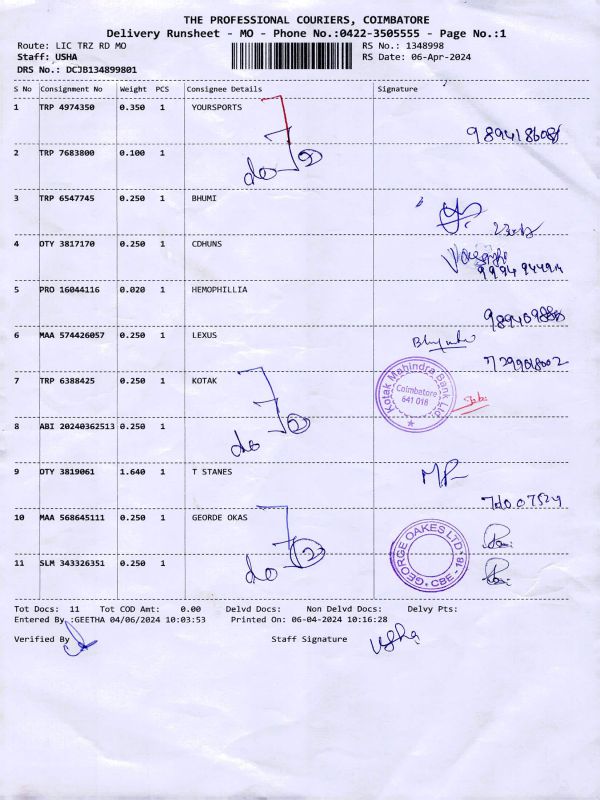 THE PROFESSIONAL COURIERS, COIMBATORE
Delivery Runsheet - MO - Phone No.:0422-3505555 - Page No.:1
Route: LIC TRZ RD MO RS No.: 1348998
Staff: USHA RS Date: 06-Apr-2024
DRS No.: DCJB134899801
S No Consignment No Weight PCS Consignee Details Signature
1 TRP 4974350 0.350 1 YOURSPORTS
2 TRP 7683800 0.100 1 do
3 TRP 6547745 0.250 1 BHUMI
4 DTY 3817170 0.250 1 CDHUNS
5 PRO 16044116 0.020 1 HEMOPHILLIA
6 MAA 574426057 0.250 1 LEXUS
7 TRP 6388425 0.250 1 KOTAK
Kotak Mahindra Bank Ltd.
Coimbatore
641 018
8 ABI 20240362513 0.250 1 do
9 DTY 3819061 1.640 1 T STANES
10 MAA 568645111 0.250 1 GEORDE OKAS
GEORGE OAKES LTD. CBE - 18
11 SLM 343326351 0.250 1 do
Tot Docs: 11 Tot COD Amt: 0.00 Delvd Docs: Non Delvd Docs: Delvy Pts:
Entered By :GEETHA 04/06/2024 10:03:53 Printed On: 06-04-2024 10:16:28
Verified By Staff Signature usha